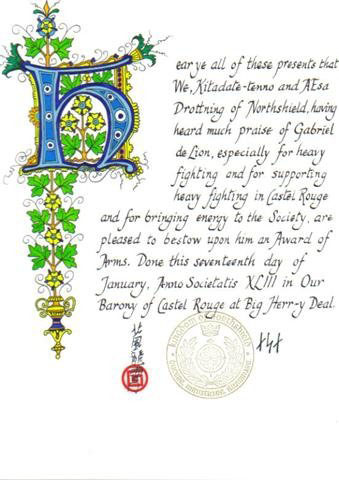 Hear ye all of these presents that
We, Kitadate-tenno and AEsa
Drottning of Northshield, having
heard much praise of Gabriel
de Lion, especially for heavy
fighting and for supporting
heavy fighting in Castel Rouge
and for bringing energy to the Society, are
pleased to bestow upon him an Award of
Arms. Done this seventeenth day of
January, Anno Societatis XLIII in Our
Barony of Castel Rouge at Big Herr-y Deal.